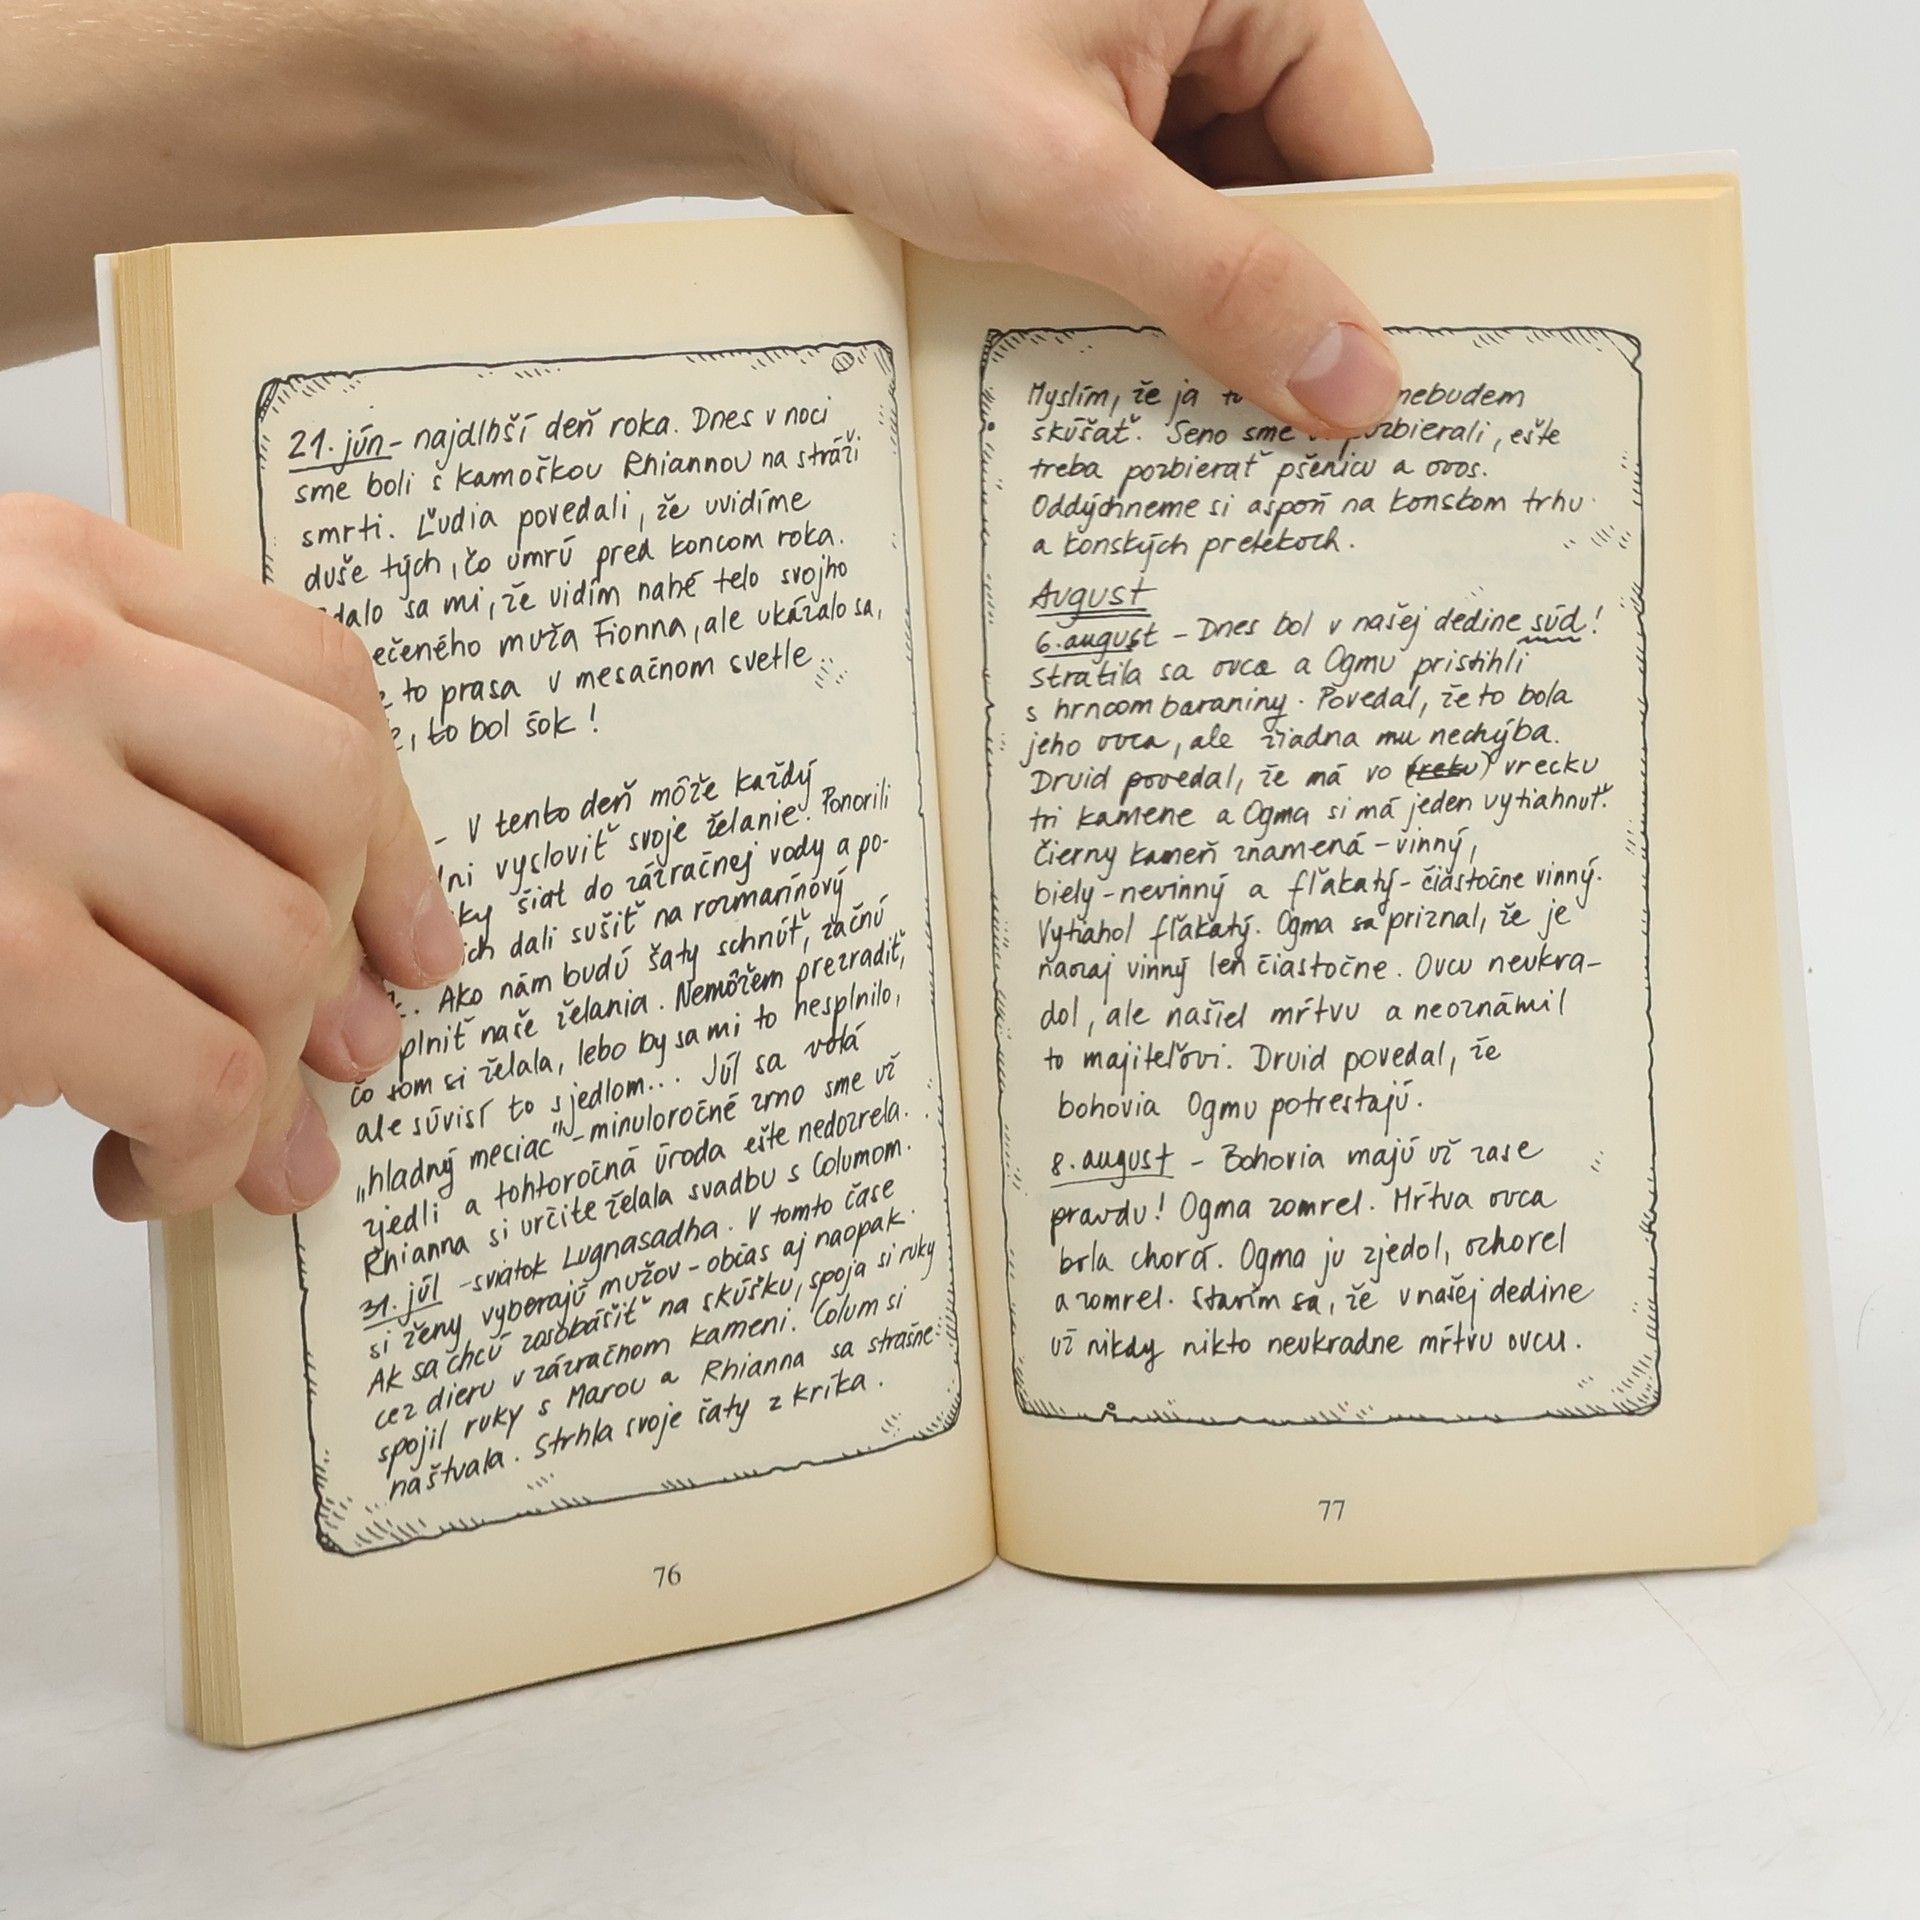 21. jún - najdlhší deň roka. Dnes v noci
sme boli s kamoškou Rhiannou na stráži
smrti. Ľudia povedali, že uvidíme
duše tých, čo umrú pred koncom roka.
sa mi, že vidím nahé telo svojho
muža Fionna, ale ukázalo sa,
to prasa v mesačnom svetle
to bol šok!
- V tento deň môže každý
vysloviť svoje želanie. Ponorili
šiat do zázračnej vody a po-
ich dali sušiť na rozmarínový
Ako nám budú šaty schnúť, začnú
plniť naše želania. Nemôžem prezradiť,
čo som si želala, lebo by sa mi to nesplnilo,
ale súvisí to s jedlom... Júl sa volá
„hladný mesiac" - minuloročné zrno sme už
zjedli a tohtoročná úroda ešte nedozrela.
Rhianna si určite želala svadbu s Columom.
31. júl - sviatok Lugnasadha. V tomto čase
si ženy vyberajú mužov - občas aj naopak.
Ak sa chcú zasobášiť na skúšku, spoja si ruky
cez dieru v zázračnom kameni. Colum si
spojil ruky s Marou a Rhianna sa strašne
naštvala. Strhla svoje šaty z kríka.
76
Myslím, že ja nebudem
skúšať. Seno sme pozbierali, ešte
treba pozbierať pšenicu a ovos.
Oddýchneme si aspoň na konskom trhu
a konských pretekoch.
August
6. august - Dnes bol v našej dedine súd!
Stratila sa ovca a Ogmu pristihli
s hrncom baraniny. Povedal, že to bola
jeho ovca, ale žiadna mu nechýba.
Druid povedal, že má vo (reku) vrecku
tri kamene a Ogma si má jeden vytiahnuť.
Čierny kameň znamená - vinný,
biely - nevinný a fľakatý - čiastočne vinný.
Vytiahol fľakatý. Ogma sa priznal, že je
naozaj vinný len čiastočne. Ovcu neukra-
dol, ale našiel mŕtvu a neoznámil
to majiteľovi. Druid povedal, že
bohovia Ogmu potrestajú.
8. august - Bohovia majú už zase
pravdu! Ogma zomrel. Mŕtva ovca
bola chorá. Ogma ju zjedol, ochorel
a zomrel. Stavím sa, že v našej dedine
už nikdy nikto neukradne mŕtvu ovcu.
77